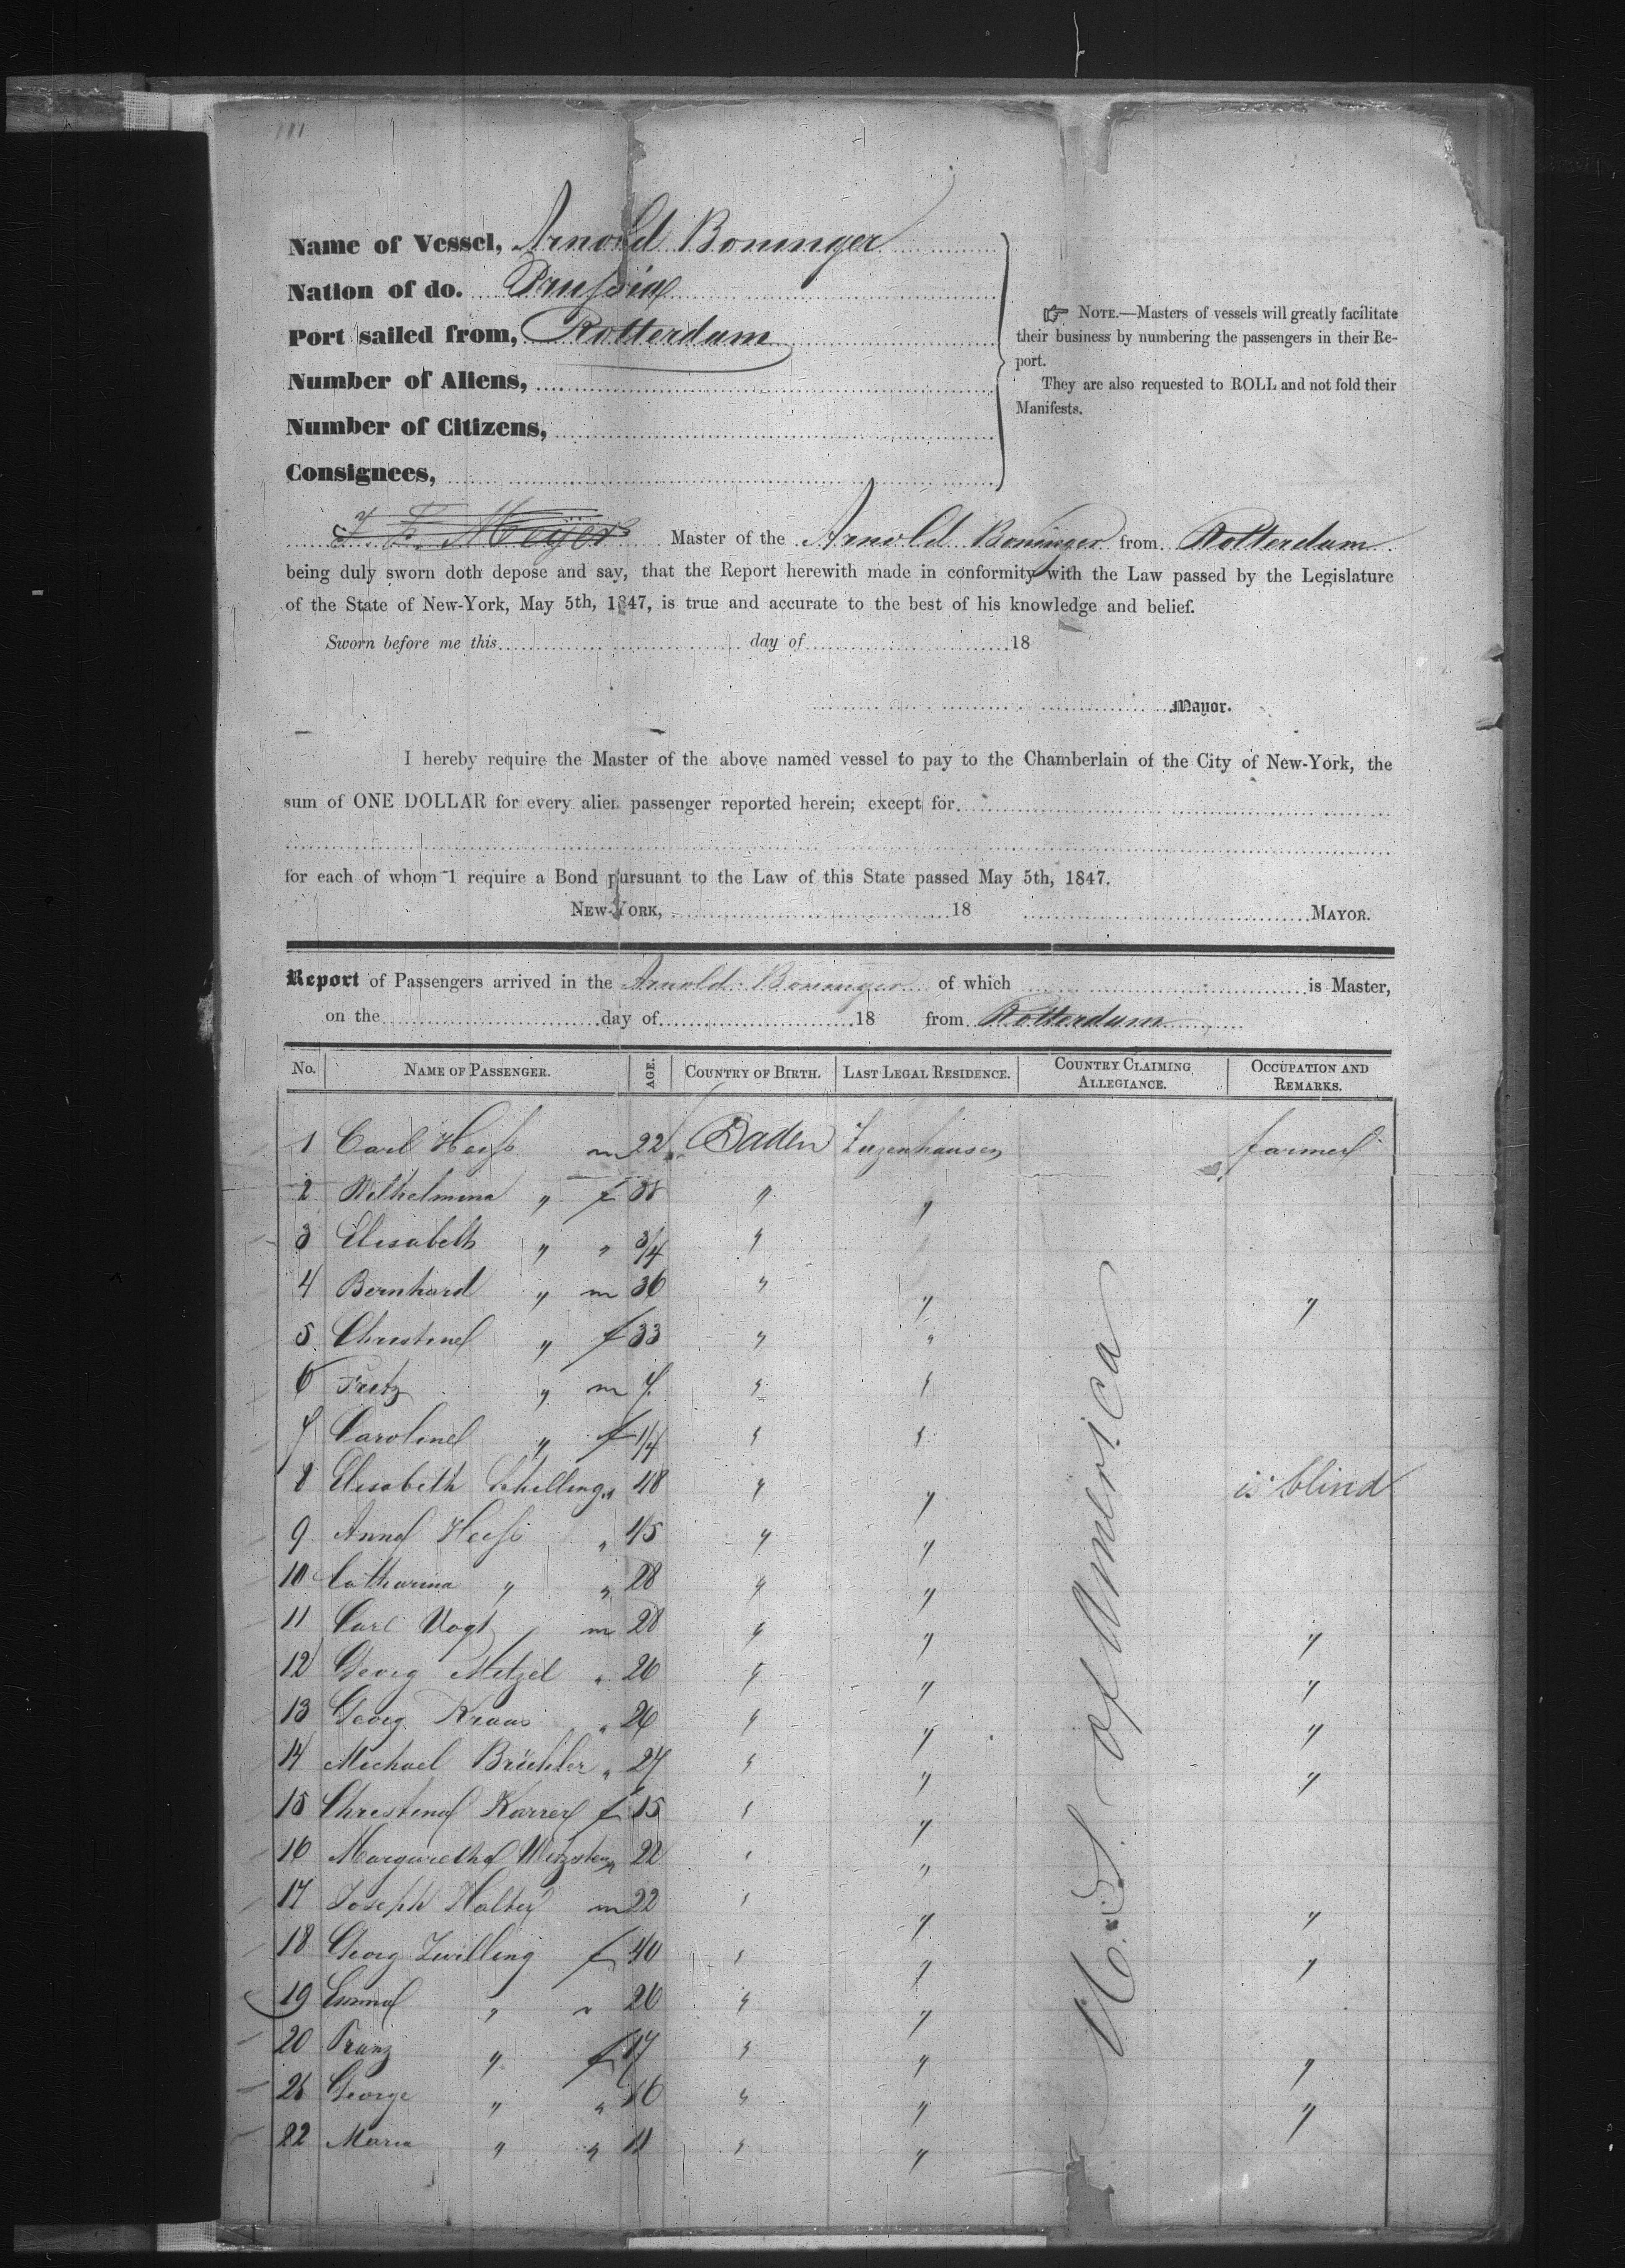 111
Name of Vessel, Arnold Boninger
Nation of do. Prussia
Port sailed from, Rotterdam
Number of Aliens,
Number of Citizens,
Consignees,
☞ NOTE.—Masters of vessels will greatly facilitate
their business by numbering the passengers in their Re-
port.
They are also requested to ROLL and not fold their
Manifests.
Meijer Master of the Arnold Boninger from Rotterdam
being duly sworn doth depose and say, that the Report herewith made in conformity with the Law passed by the Legislature
of the State of New-York, May 5th, 1847, is true and accurate to the best of his knowledge and belief.
Sworn before me this day of 18
Mayor.
I hereby require the Master of the above named vessel to pay to the Chamberlain of the City of New-York, the
sum of ONE DOLLAR for every alien passenger reported herein; except for
for each of whom I require a Bond pursuant to the Law of this State passed May 5th, 1847.
NEW-YORK, 18 MAYOR.
Report of Passengers arrived in the Arnold Boninger of which is Master,
on the day of 18 from Rotterdam
No. NAME OF PASSENGER. AGE. COUNTRY OF BIRTH. LAST LEGAL RESIDENCE. COUNTRY CLAIMING ALLEGIANCE. OCCUPATION AND REMARKS.
1 Carl Heiß m 22 Baden Luzenhausen farmer
2 Wilhelmina " f 38 " "
3 Elisabeth " " 3/4 "
4 Bernhard " m 36 " " "
5 Christina " f 33 " "
6 Fritz " m 7 " "
7 Carolina " f 1/4 " "
8 Elisabeth Schilling " 48 " " is blind
9 Anna Heiß " 45 " "
10 Catharina " " 28 " "
11 Carl Vogt m 28 " " "
12 Georg Metzel " 26 " " "
13 Georg Kraus " 26 " " "
14 Michael Brüchler " 27 " " "
15 Christina Karrer f 15 " "
16 Margaretha " 22 " "
17 Joseph Halter m 22 " " "
18 Georg Zwilling f 40 " " "
19 Emma " " 26 " "
20 Franz " f 17 " " "
21 George " " 16 " " "
22 Maria " " 11 " "
U. S. of America